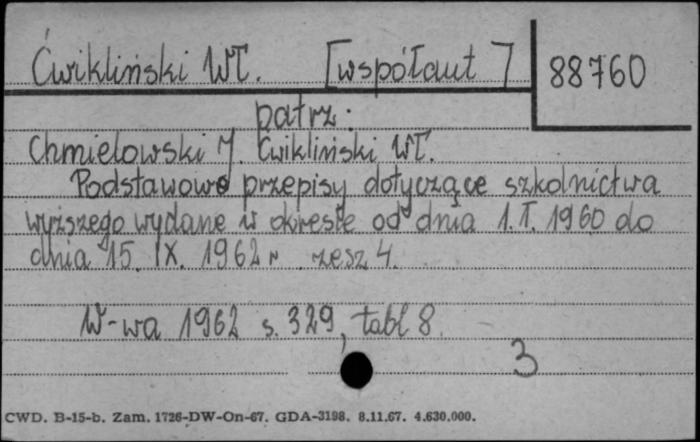 Ćwikliński Wł. [współaut] 88760
patrz:
Chmielowski J. Ćwikliński Wł.
Podstawowe przepisy dotyczące szkolnictwa
wyższego wydane w okresie od dnia 1.I.1960 do
dnia 15. IX. 1962 r zesz 4.
W-wa 1962 s. 329, tabl 8.
3
CWD. B-15-b. Zam. 1726-DW-On-67. GDA-3198. 8.11.67. 4.630.000.